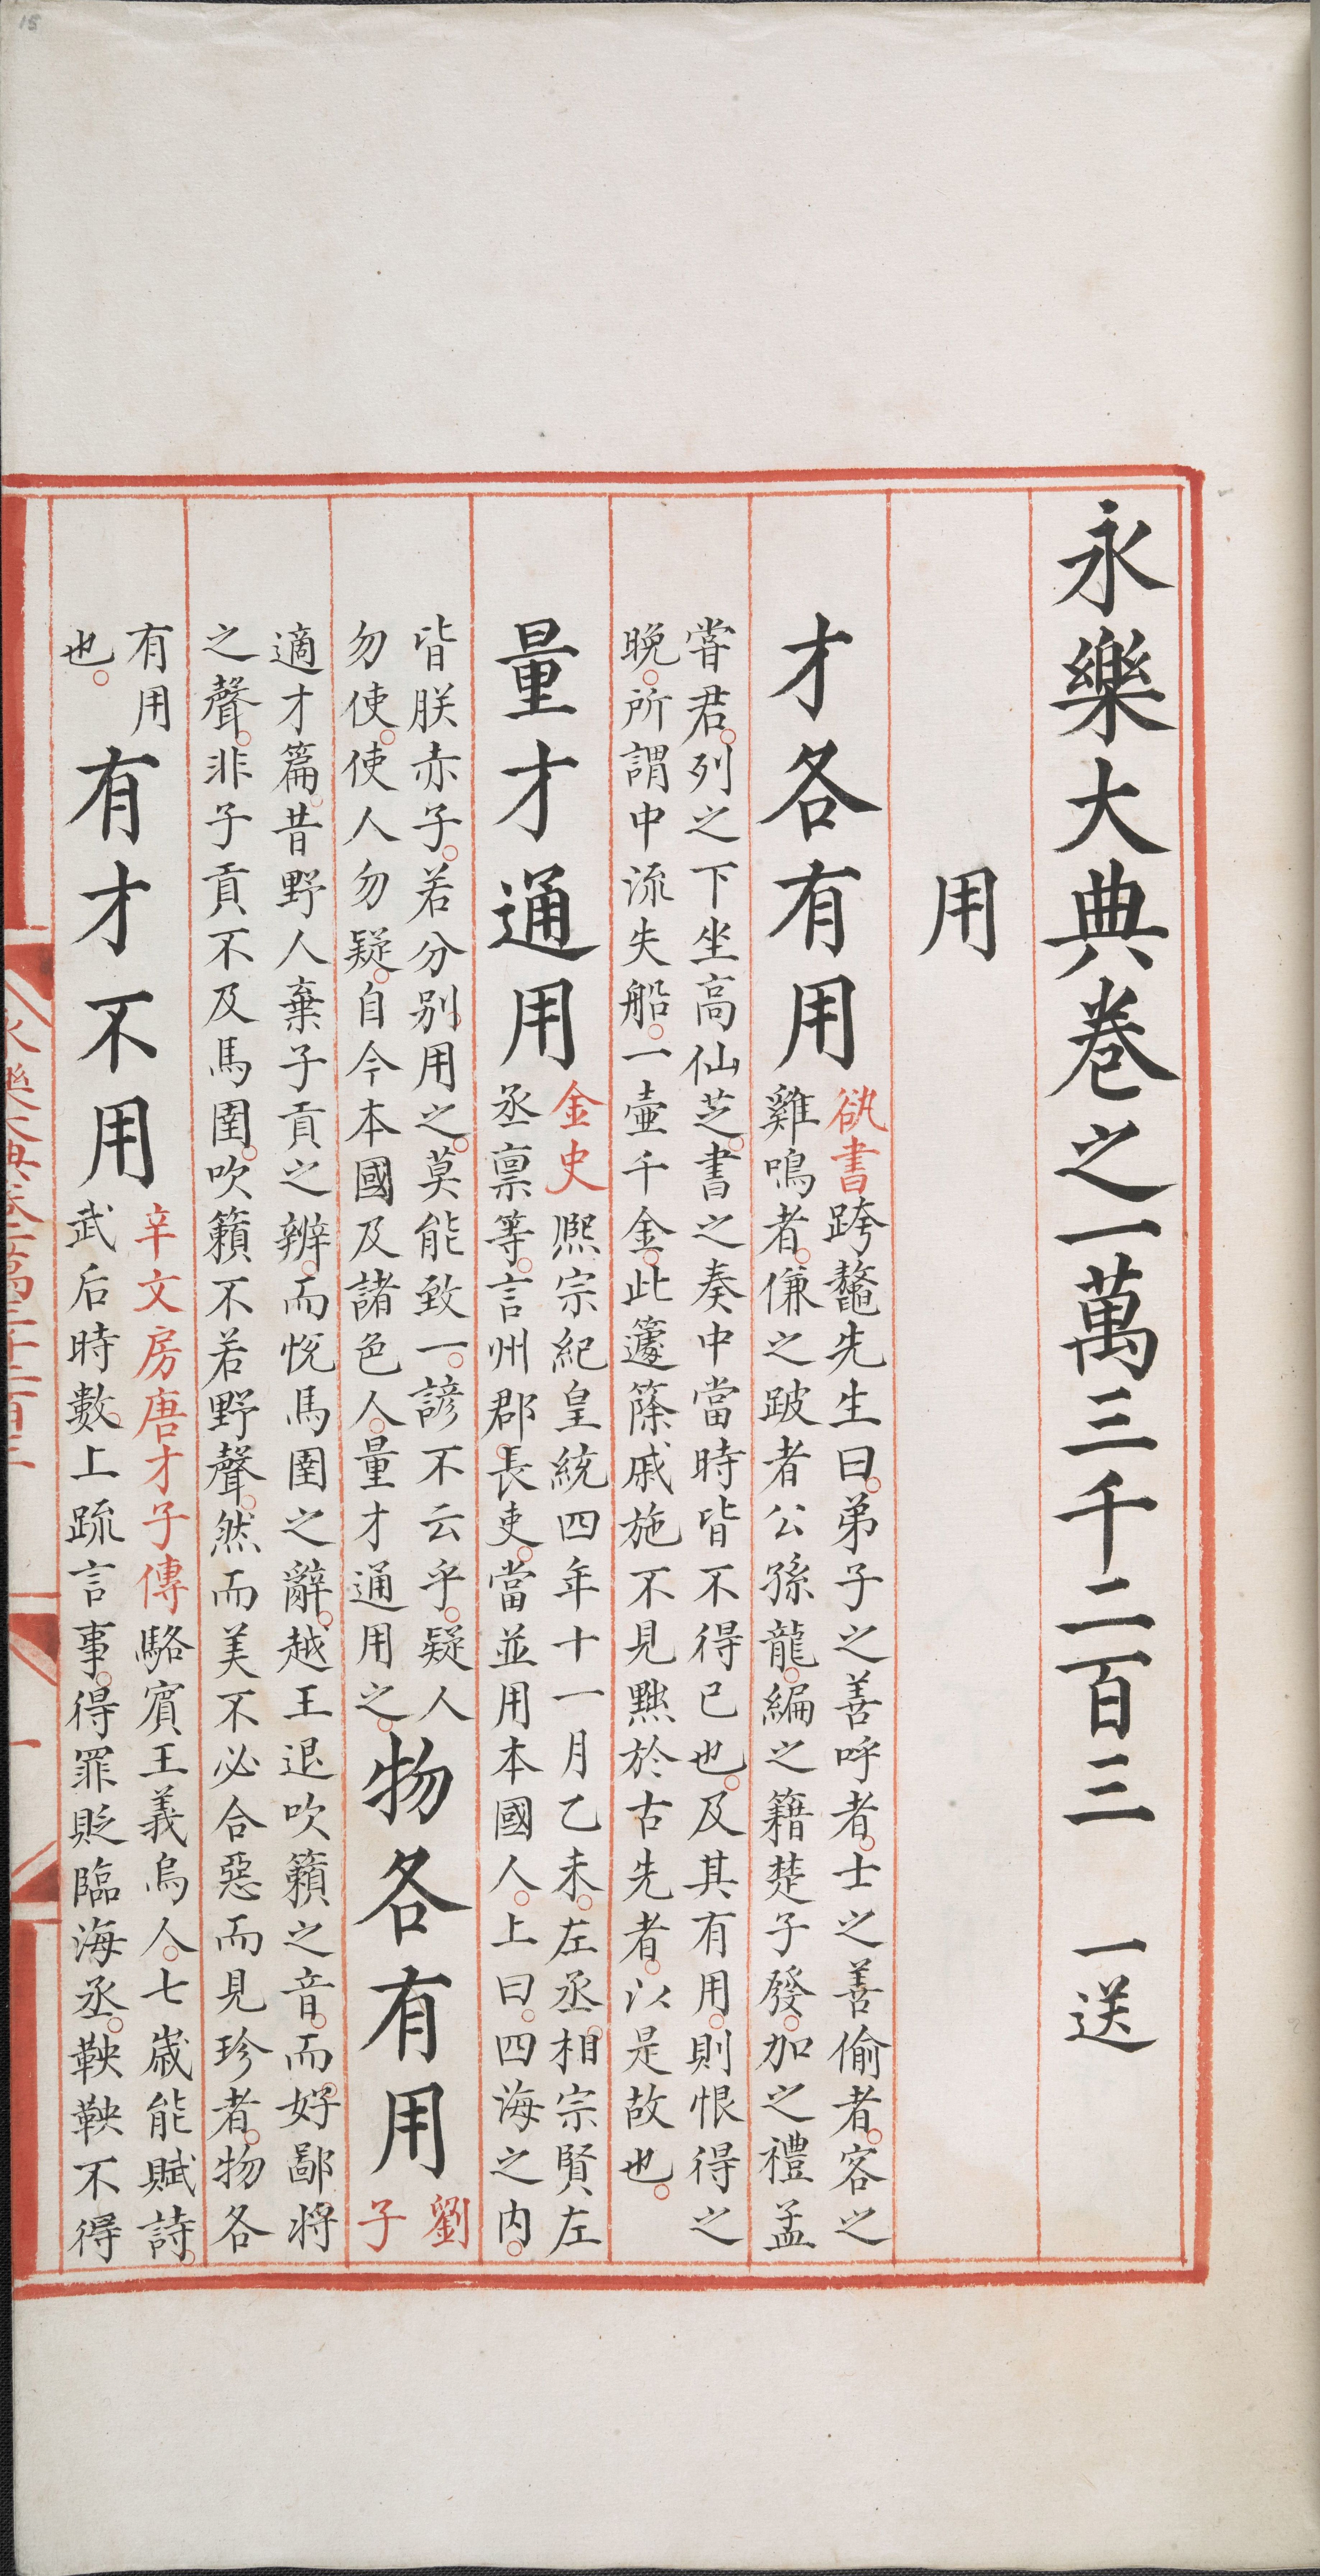 永樂大典卷之一萬三千二百三 一送
用
才各有用
訄書跨鼇先生曰弟子之善呼者士之善偷者客之
雞鳴者傔之跛者公孫龍編之籍楚子發加之禮孟
嘗君列之下坐高仙芝書之奏中當時皆不得已也及其有用則恨得之
晚所謂中流失船一壷千金此籧篨戚施不見黜於古先者以是故也
量才通用
金史熈宗紀皇統四年十一月乙未左丞相宗賢左
丞禀等言州郡長吏當並用本國人上曰四海之内
皆朕赤子若分别用之莫能致一諺不云乎疑人
勿使使人勿疑自今本國及諸色人量才通用之
物各有用
劉
子
適才篇昔野人棄子貢之辨而悅馬圉之辭越王退吹籟之音而好鄙將
之聲非子貢不及馬圉吹籟不若野聲然而美不必合惡而見珍者物各
有用
也
有才不用
辛文房唐才子傳駱賔王義烏人七嵗能賦詩
武后時數上疏言事得罪貶臨海丞鞅鞅不得
15